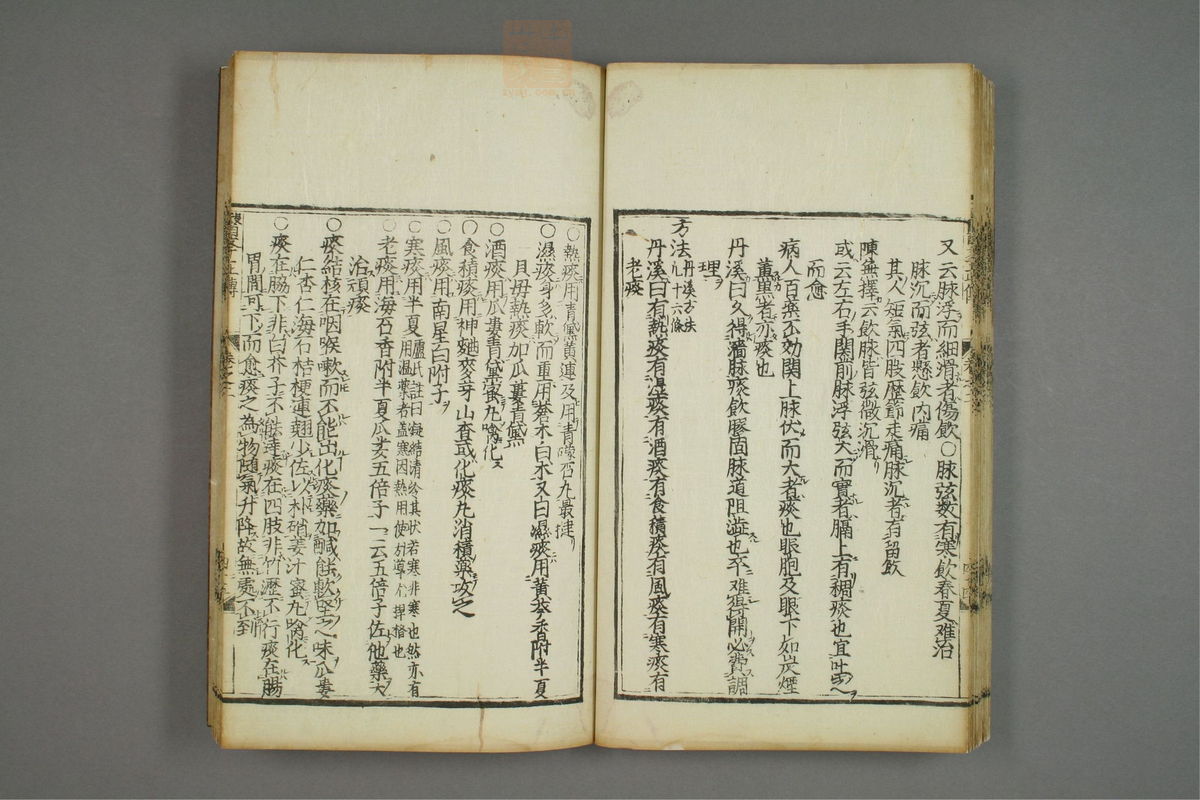 又云脉浮而細滑者傷飲〇脉弦數有寒飲春夏难治
脉沉而弦者懸飲内痛
其人短氣四肢歴節走痛脉沉者有留飲
陳無擇云飲脉皆弦微沉滑
或云左右手関前脉浮弦大而實者膈上有稠痰也宜吐之
而愈
病人百藥不効関上脉伏而大者痰也眼胞及眼下如炭煙
薫黒者亦痰也
丹溪曰久得濇脉痰飲膠固脉道阻澁也卒难得開必費調
理
方法丹溪方法
凡十六條
丹溪曰有熱痰有湿痰有酒痰有食積痰有風痰有寒痰有
老痰
〇熱痰用青黛黄連及用青礞石丸最捷
〇濕痰身多軟而重用蒼木白木又曰濕痰用黄芩香附半夏
貝毋熱痰加瓜蔞青黛
〇酒痰用瓜蔞青黛蜜丸噙化
〇食積痰用神麯麥芽山査或化痰丸消積藥攻之
〇風痰用南星白附子
〇寒痰用半夏盧氏註曰凝結清冷其状若寒非寒也然亦有
用温藥者盖寒因熱用使引導亽捍格也
〇老痰用海石香附半夏瓜蒌五倍子一云五倍子佐他藥大
治頑痰
〇痰結核在咽喉嗽而不能出化痰藥加鹹能軟堅之味瓜蔞
仁杏仁海石桔梗連翹少佐以朴硝姜汁蜜丸噙化
〇痰在脇下非白芥子不能達痰在四肢非竹瀝不行痰在腸
胃間可下而愈痰之為物随氣升降故無處不到